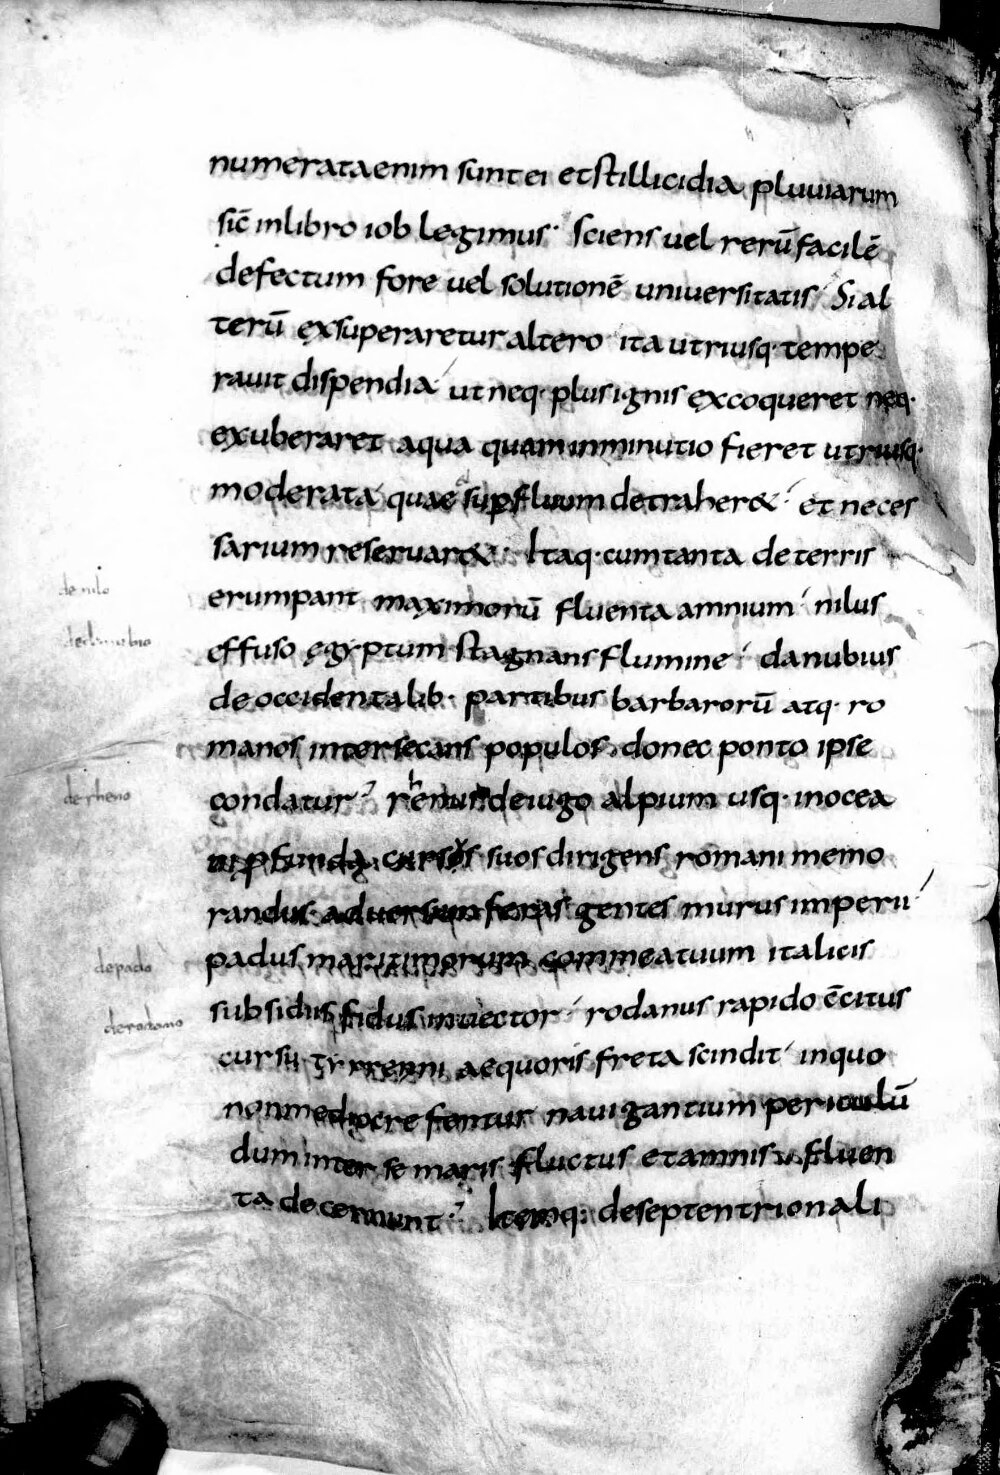 numerata enim sunt ei et stillicidia pluuiarum
sic̄ in libro iob legimus · sciens uel rerū facilē
defectum fore uel solutionē uniuersitatis · Si al
terū exsuperaretur altero · ita utriusq· tempe
rauit dispendia · ut neq· plus ignis excoqueret neq·
exuberaret aqua quam inminutio fieret utriusq·
moderata · quae supfluum detraher& · et neces
sarium reseruar& · Itaq· cum tanta de terris
de nilo
erumpant maximorū fluenta amnium · nilus
de danubio
effuso ęgyptum stagnans flumine · danubius
de occidentalib· partibus barbarorū atq· ro
manos intersecans populos · donec ponto ipse
de rheno
condatur · rhenus de iugo alpium usq· in ocea
ni pfunda cursus suos dirigens romani memo
randus · aduersum feras gentes murus imperii ·
de pado
padus maritimorum commeatuum italicis
de rodano
subsidiis fidus inuector · rodanus rapido c̄citus
cursu tyrreni aequoris freta scindit · in quo
non mediocre fertur nauigantium periculū
dum inter se maris fluctus et amnis fluen
ta decernunt · Itemq· de septentrionali